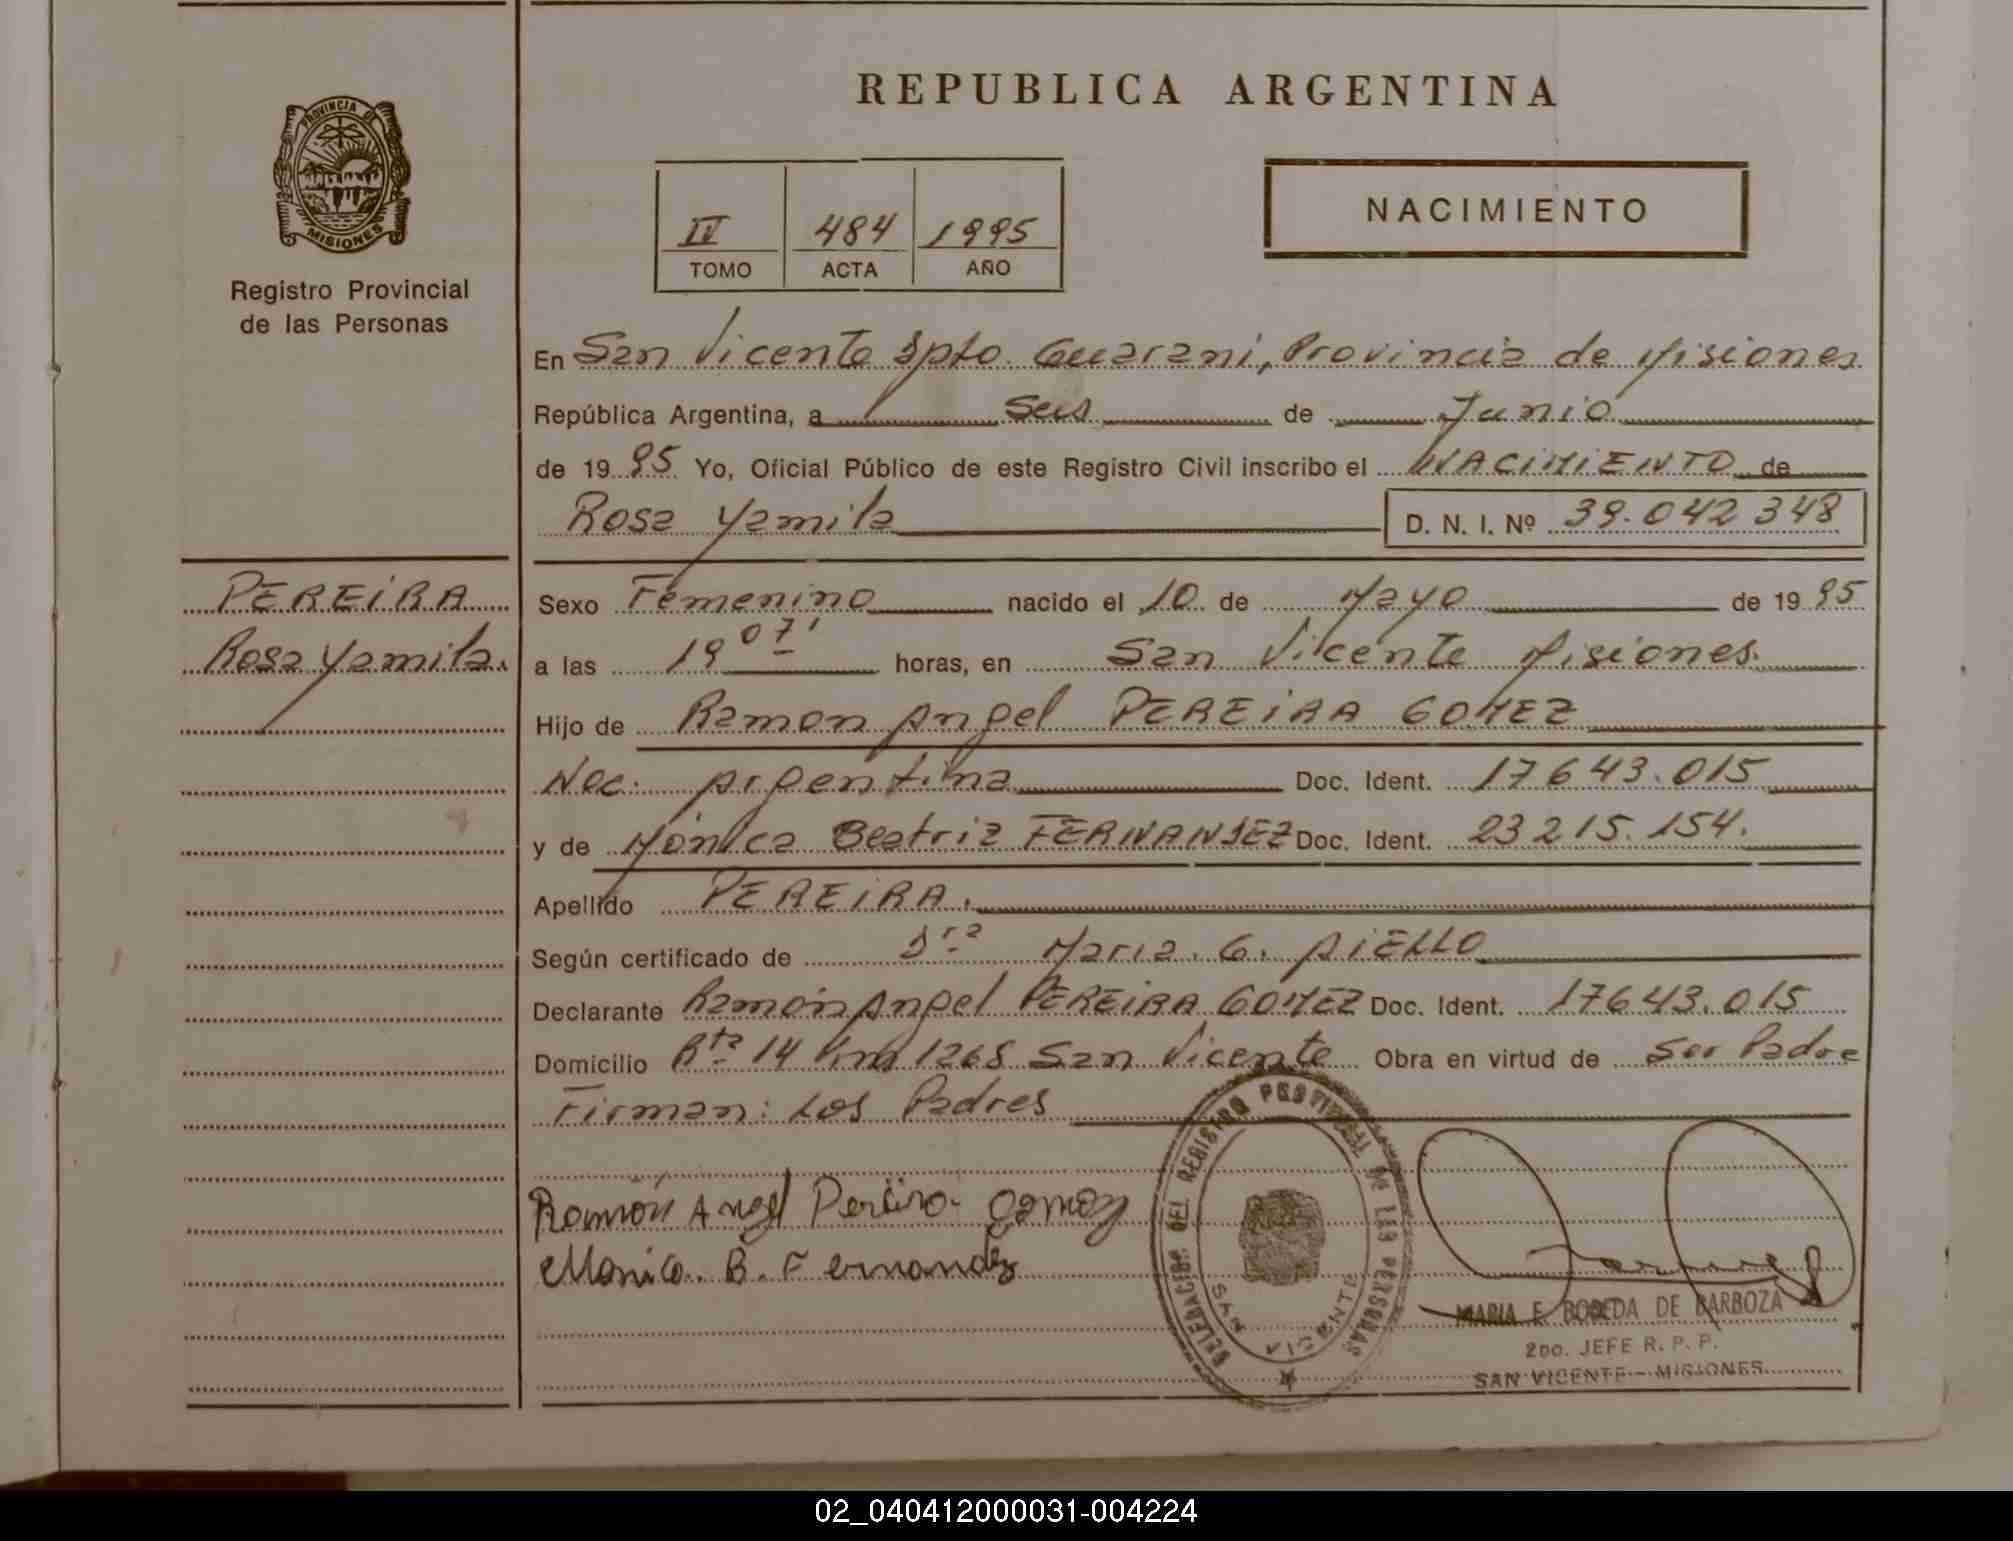 REPUBLICA ARGENTINA
PROVINCIA DE
MISIONES
Registro Provincial
de las Personas
IV 484 1995
TOMO ACTA AÑO
NACIMIENTO
En San Vicente Dpto. Guarani, Provincia de Misiones
República Argentina, a Seis de Junio
de 19 95 Yo, Oficial Público de este Registro Civil inscribo el NACIMIENTO de
Rosa Yamila D. N. I. Nº 39.042 348
PEREIRA
Rosa Yamila.
Sexo Femenino nacido el 10 de Mayo de 19 95
a las 19 07' horas, en San Vicente Misiones.
Hijo de Ramon Angel PEREIRA GOMEZ
Nac. Argentina Doc. Ident. 17643.015
y de Mónica Beatriz FERNANDEZ Doc. Ident. 23215.154.
Apellido PEREIRA.
Según certificado de Dra Maria. G. AIELLO
Declarante Ramón Angel PEREIRA GOMEZ Doc. Ident. 17643.015
Domicilio Rta 14 km 1268 San Vicente Obra en virtud de Ser Padre
Firman: Los Padres
Ramón Angel Pereira Gomez
Monica. B. Fernandez
DELEGACION DEL REGISTRO PROVINCIAL DE LAS PERSONAS
SAN VICENTE
MARIA E. BOBEDA DE BARBOZA
2DO. JEFE R. P. P.
SAN VICENTE - MISIONES
02_040412000031-004224